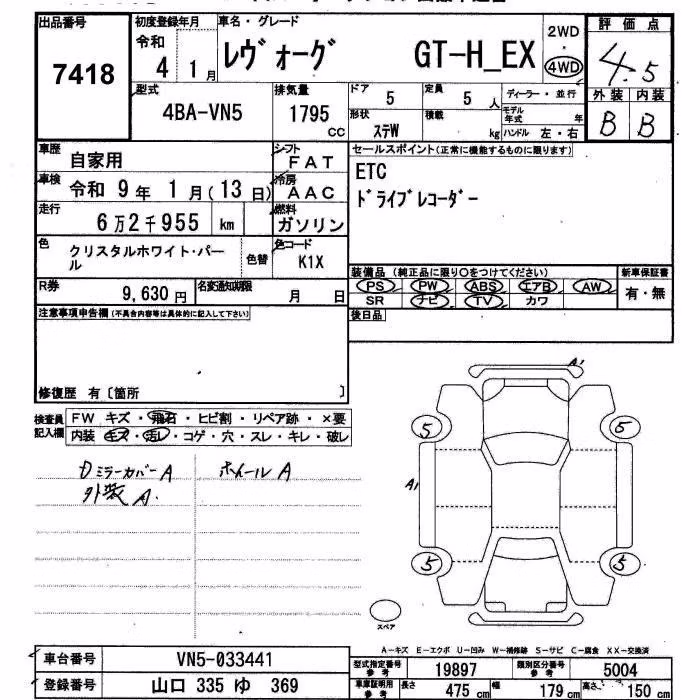 出品番号
7418
初度登録年月
令和
4 1月
車名・グレード
レヴォーグ GT-H_EX
2WD
・
4WD
評価点
4.5
外装 内装
B B
型式
4BA-VN5
排気量
1795
CC
ドア
5
定員
5 人
ディーラー・並行
形状
ステW
積載
kg
モデル年式 年
ハンドル 左・右
車歴
自家用
シフト
FAT
車検
令和 9年 1月(13日)
冷房
AAC
走行
6万2千955 km
燃料
ガソリン
色
クリスタルホワイト・パール
色替
色コード
K1X
R券
9,630円
名変通知期限
月 日
セールスポイント(正常に機能するものに限ります)
ETC
ドライブレコーダー
装備品 (純正品に限り○をつけてください)
新車保証書
PS PW ABS エアB AW
有・無
SR ナビ TV カワ
後日品
注意事項申告欄(不具合内容等は具体的に記入して下さい)
修復歴 有〔箇所 〕
検査員
記入欄
FW キズ・飛石・ヒビ割・リペア跡・×要
内装 キズ・汚レ・コゲ・穴・スレ・キレ・破レ
Dミラーカバー A
ホイール A
外装 A.
A1
5 5
A1
5 5
スペア
A-キズ E-エクボ U-凹み W-補修跡 S-サビ C-腐食 XX-交換済
車台番号
VN5-033441
登録番号
山口 335 ゆ 369
型式指定番号
参考
19897
類別区分番号
参考
5004
車庫証明用
参考
長さ
475 cm
幅
179 cm
高さ
150 cm